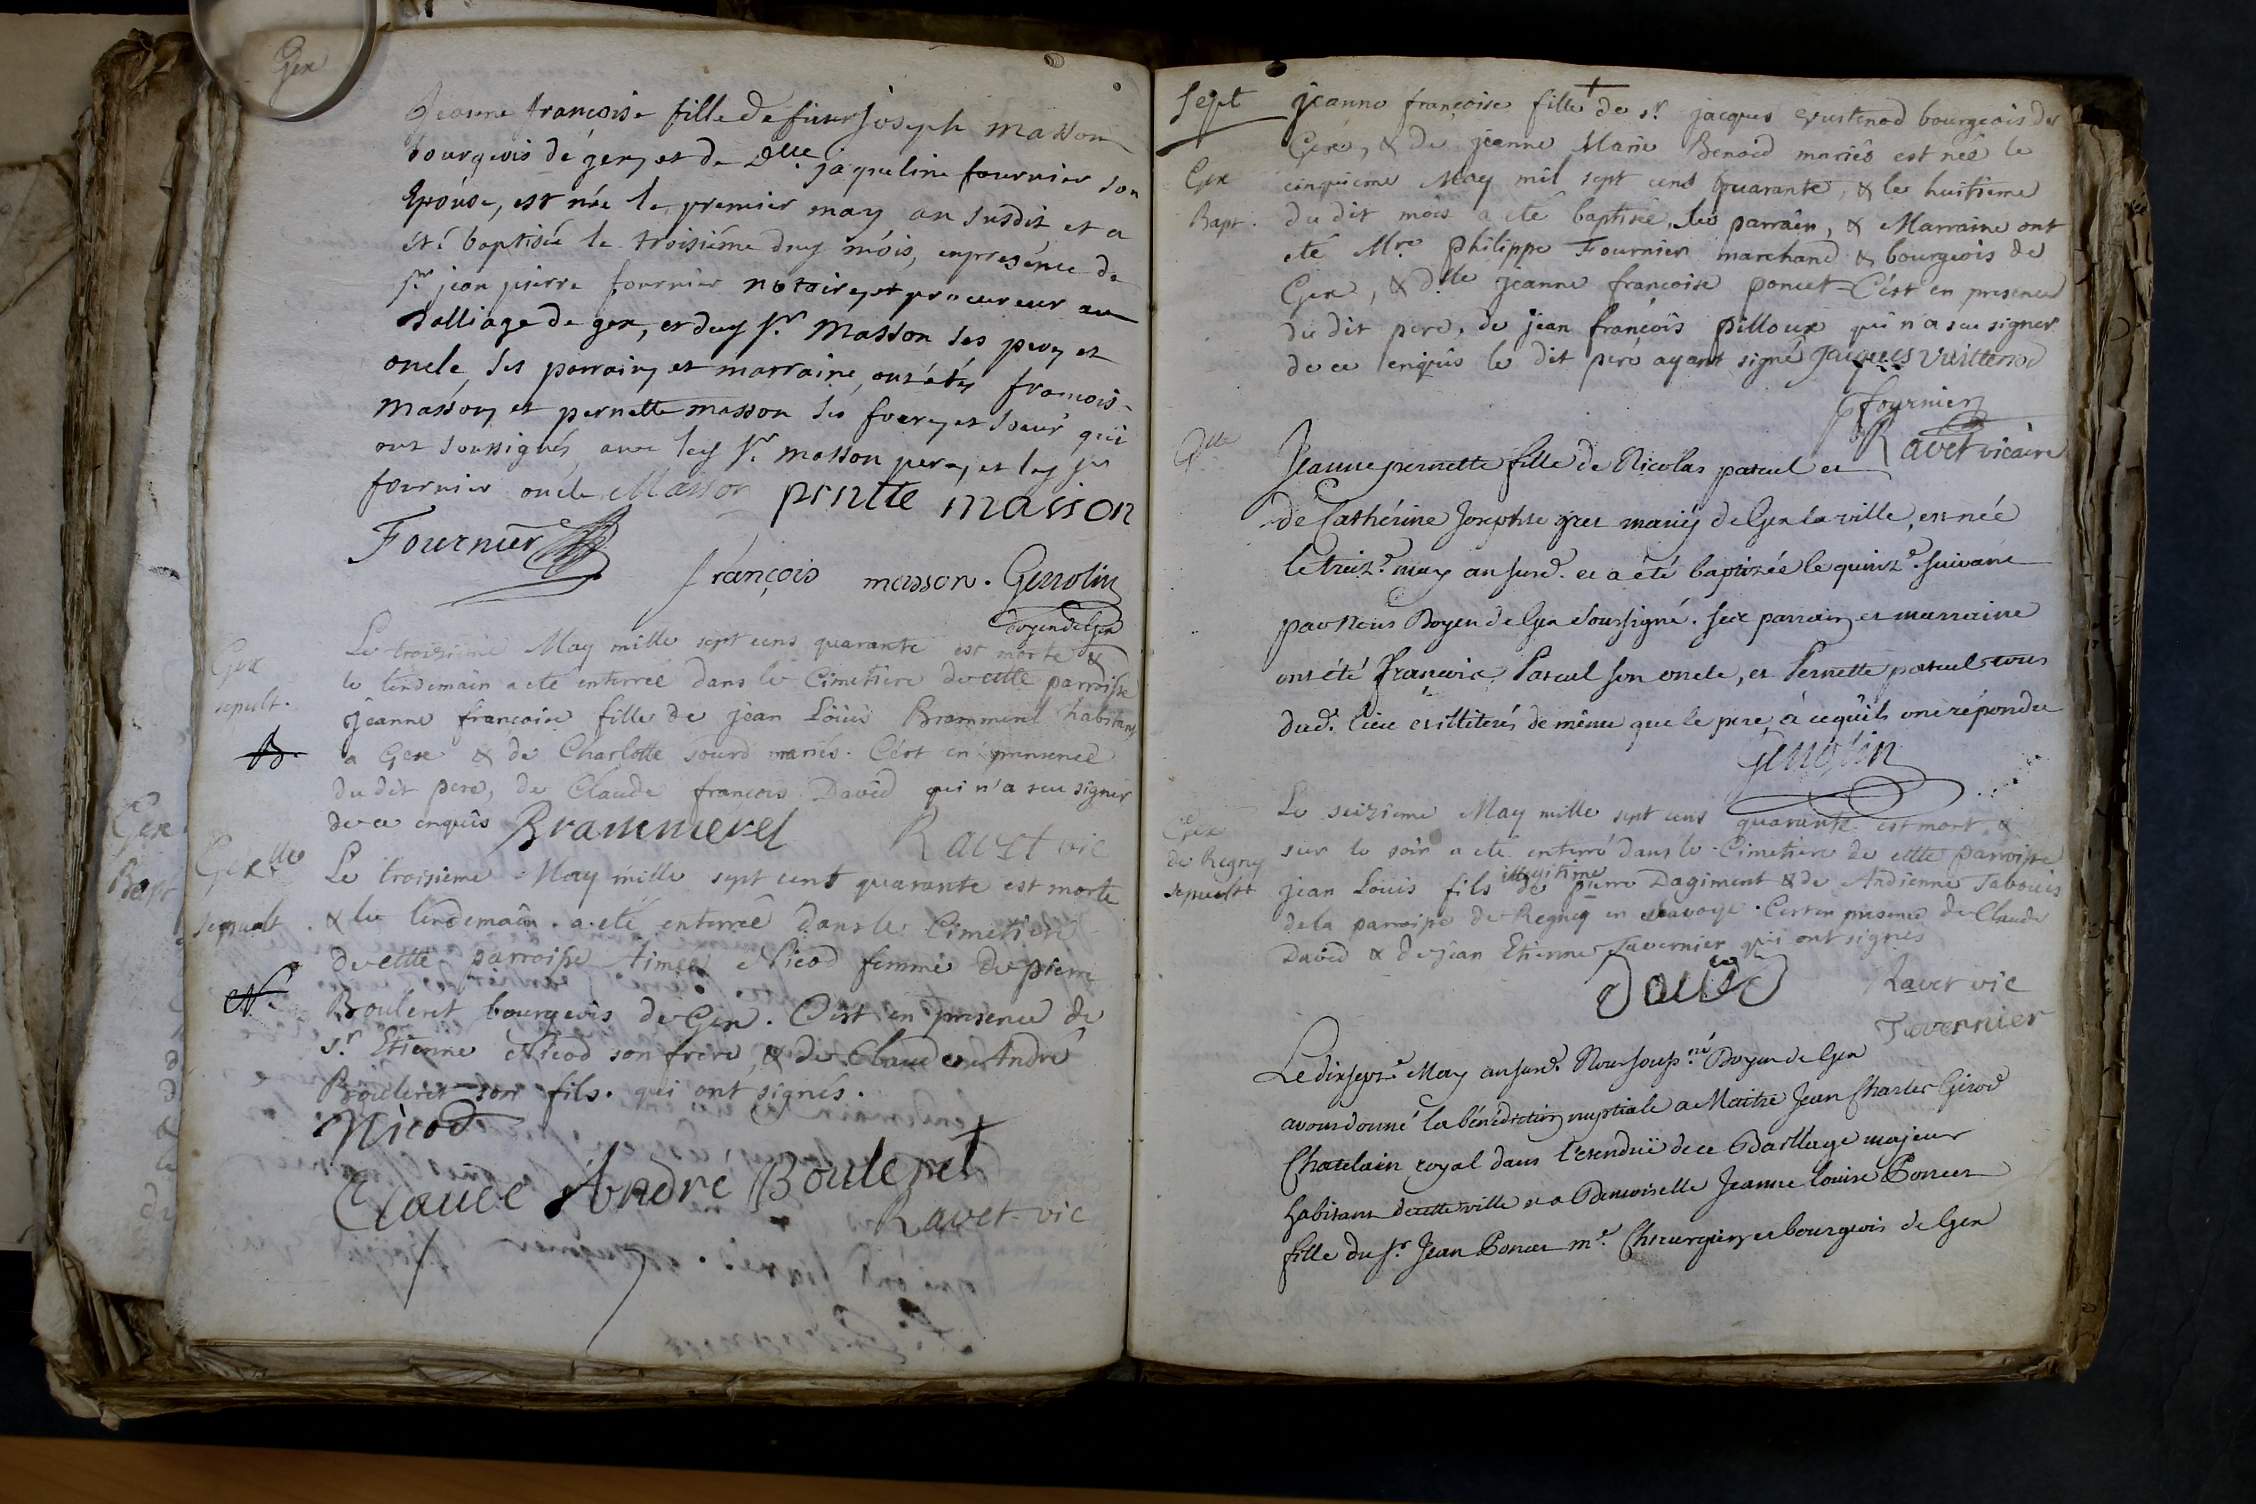 Gex
Jeanne françoise fille de sieur joseph masson
bourgeois de gex, et de Dlle jaqueline fournier son
Epouse, est née le premier may an susdit et a
été baptisée le troisiéme duy mois, en presénce de
sr jean pierre fournier notaire, et procureur au
balliage de gex, et duy sr masson ses pere, et
oncle, ses parrain, et marraine, ont étéz françois
masson, et pernette masson ses frere, et soeur qui
ont soussignés, avec ley sr masson pere, et ley sr
fournier oncle Masson prntte masson
Fournier
françois masson. Genolin
doyen de Gex
Gex
sepult.
B
Le troisième May mille sept cens quarante est morte &
le lendemain a eté enterrée dans le Cimetière de cette parroisse
jeanne françoise fille de jean Löüis Brammerel habitans
a Gex & de Charlotte sourd mariés. C'ést en presence
du dit pere, de Claude françois David qui n'a seu signer
de ce enquis Brammerel Ravet vic
Gex. lle
sepult.
N
Le troisieme May mille sept cens quarante est morte
& le lendemain a eté enterrée dans le Cimetiere
de cette parroisse Aimée Nicod femme de pierre
Brouleret bourgeois de Gex. C'est en presence de
sr. Etienne Nicod son frere, & de Claude André
Bouleret son fils. qui ont signés.
Nicod
Claude André Bouleret
Ravet vic
Gex
Bapt
sept
Gex
Bapt.
jeanne françoise fille de sr. jacques vuittenod bourgeois de
Gex, & de jeanne Marie Benoid mariés est née le
cinquieme May mil sept cens quarante, & le huitieme
du dit mois a eté baptisée, les parrain, & Marraine ont
eté Mre philippe Fournier marchand & bourgeois de
Gex, & dlle jeanne françoise poncet C'ést en presence
du dit pere, de jean françois pilloux qui n'a seu signer
de ce enquis le dit pere ayant signé jacques vuittenod
pfournier
Ravet vicaire
Jeanne pernette fille de Nicolas pascul et
de Catherine Josephte gres mariéz de Gex la ville, est née
le treize. may an susd. et a été baptizée le quinze. suivant
par Nous Doyen de Gex soussigné. ses parrain et marraine
ont été françois Pascul son oncle, et Pernette pascul tous
dud. lieu et illiterés de même que le pere, à ce qu'ils ont répondu
Genolin
Gex
de Regny
sepult
Le seizieme May mille sept cens quarante est mort, &
sur le soir a eté enterré dans le Cimetiere de cette parroisse
jean Louis fils illegitime de pierre Dagiment & de Andienne Tabouis
de la parroisse de Regny en savoye. C'est en presence de Claude
David & de jean Etienne Tavernier qui ont signés
David
Ravet vic
Tavernier
Le dix sept.e May an susd. Nous souss.né Doyen de Gex
avons donné la bénédiction nuptiale a Maitre Jean Charles Girod
Chatelain royal dans l'etenduë de ce Bailliage majeur
habitant de cette ville et a Demoiselle Jeanne Louise Poncet
fille du sr. Jean Poncet me. Chirurgien et bourgeois de Gex